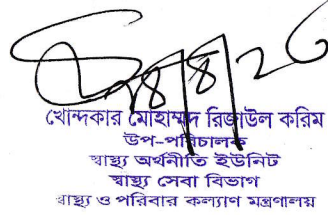 ২৪/৪/২৩
খোন্দকার মোহাম্মদ রিজাউল করিম
উপ-পরিচালক
স্বাস্থ্য অর্থনীতি ইউনিট
স্বাস্থ্য সেবা বিভাগ
স্বাস্থ্য ও পরিবার কল্যাণ মন্ত্রণালয়